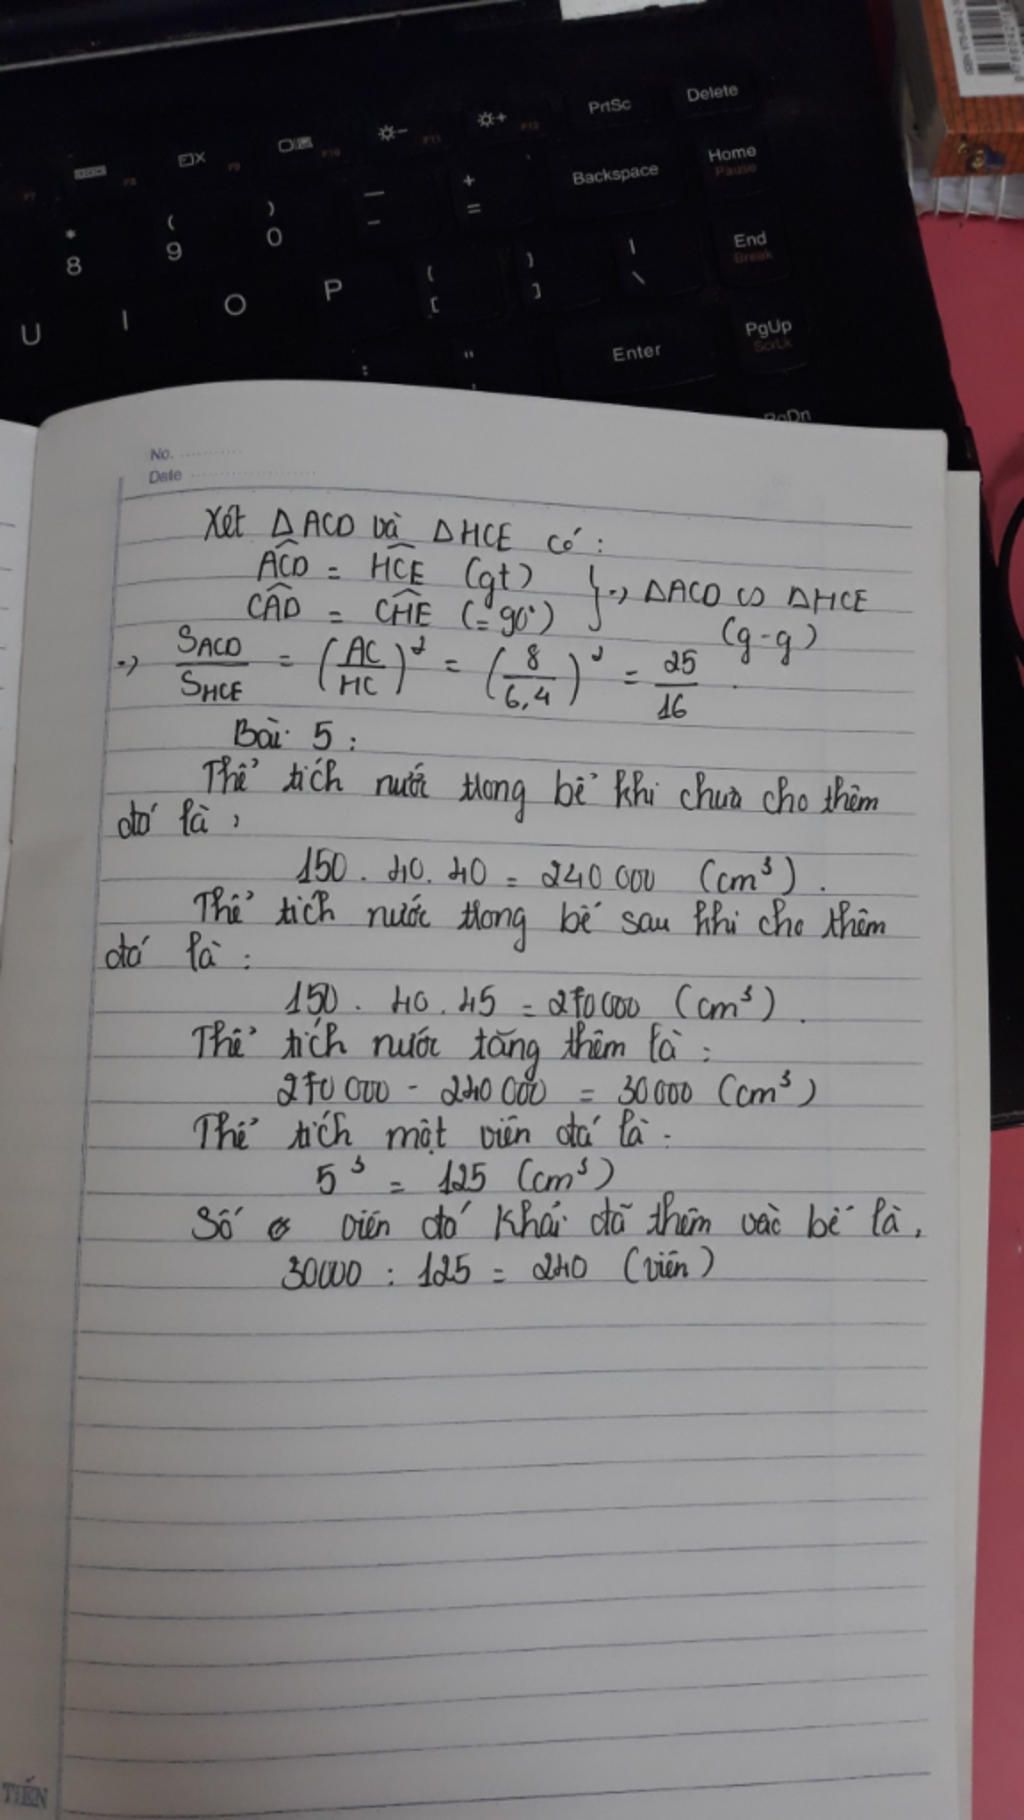 PrtSc
Delete
F7
F8
F9
F10
F11
F12
Backspace
Home
Pause
*
8
(
9
)
0
—
-
+
=
End
Break
U
I
O
P
{
[
}
]
|
\
PgUp
ScrLk
:
"
Enter
PgDn
No.
Date
Xét ΔACD và ΔHCE có:
ACD = HCE (gt)
CAD = CHE (= 90°)
} => ΔACD ∽ ΔHCE
(g-g)
=> SACD/SHCE = (AC/HC)² = (8/6,4)² = 25/16
Bài 5:
Thể tích nước trong bể khi chưa cho thêm
đá là,
150 . 40. 40 = 240 000 (cm³).
Thể tích nước trong bể sau khi cho thêm
đá là:
150 . 40. 45 = 270000 (cm³).
Thể tích nước tăng thêm là:
270 000 - 240 000 = 30000 (cm³)
Thể tích một viên đá là:
5³ = 125 (cm³)
Số viên đá Khải đã thêm vào bể là,
30000 : 125 = 240 (viên)
TIẾN